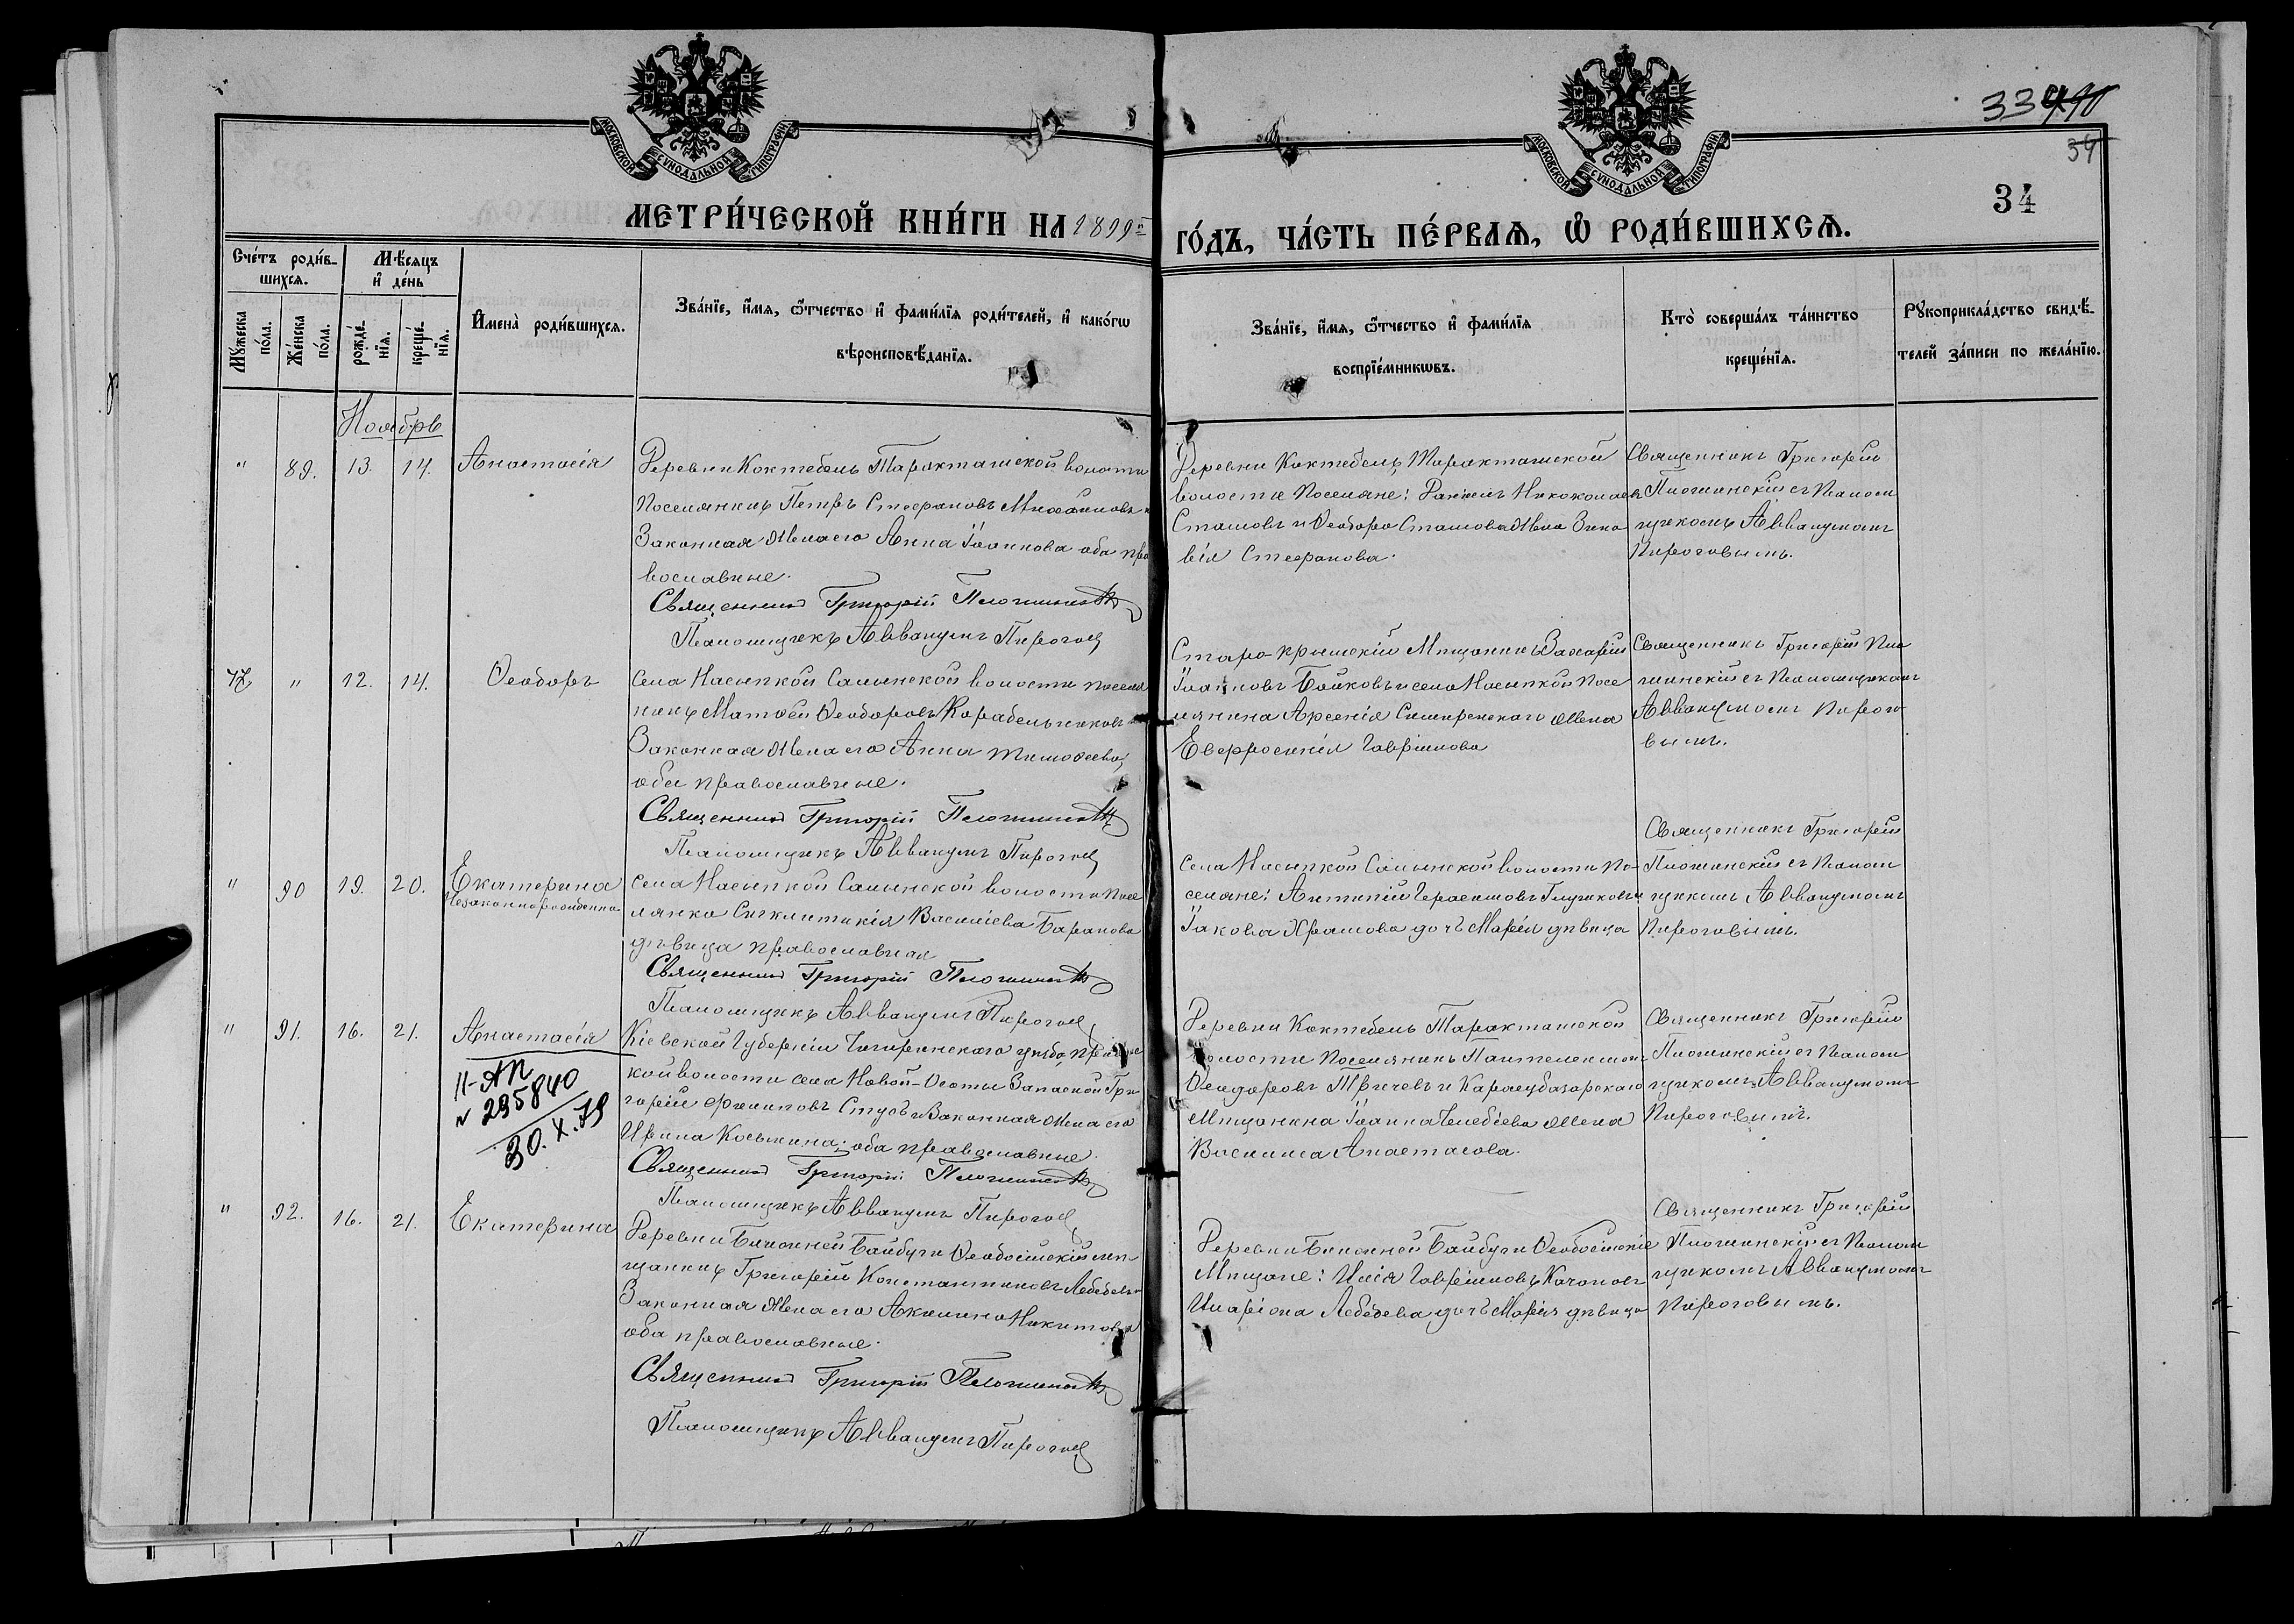 МОСКОВСКОЙ СѴНОДАЛЬНОЙ ТИПОГРАФІИ
МОСКОВСКОЙ СѴНОДАЛЬНОЙ ТИПОГРАФІИ
334
34
34
МЕТРИ́ЧЕСКОЙ КНИ́ГИ НА 1899й
ГО́ДЪ, ЧА́СТЬ ПЕ́РВАѦ, Ѽ РОДИ́ВШИХСѦ.
Сче́тъ роди́в-
шихсѧ.
Мѣ́сѧцъ
и҆ де́нь
Мꙋ́жеска по́ла.
Же́нска по́ла.
рожде́нїѧ.
креще́нїѧ.
И҆мена̀ роди́вшихсѧ.
Зва́нїе, и҆́мѧ, ѻ҆́тчество и҆ фами́лїѧ роди́телей, и҆ како́гѡ
вѣроисповѣ́данїѧ.
Зва́нїе, и҆́мѧ, ѻ҆́тчество и҆ фами́лїѧ
воспрїе́мникѡвъ.
Кто̀ соверша́лъ та́инство
креще́нїѧ.
Рꙋкоприкла́дство свидѣ́-
телей за́писи по жела́нїю.
Ноябрь
" 89. 13. 14. Анастасія
Деревни Коктебель Таракташской волости
поселянинъ Петръ Стефановъ
Законная жена его Анна Іоаннова оба пра
вославные.
Священникъ Григорій
Псаломщикъ Аввакумъ Пироговъ
Деревни Коктебель Таракташской
волости поселяне:
Сташовъ и Ѳеодора Сташова жена Зино
вія Стефанова.
Священникъ Григорій
съ псалом
щикомъ Аввакумомъ
Пироговымъ.
47 " 12. 14. Ѳеодоръ
Села Насыпкой Салынской волости поселя
нинъ Матѳей Ѳеодоровъ Карабельниковъ
Законная жена его Анна Тимоѳеева,
оба православные.
Священникъ Григорій
Псаломщикъ Аввакумъ Пироговъ
Старо-Крымскій Мѣщанинъ Захарій
Іоанновъ Бойковъ и села Насыпкой посе
лянина Арсенія жена
Евфросинія Гавріилова
Священникъ Григорій
съ псаломщикомъ
Аввакумомъ Пирого
вымъ.
" 90 19. 20. Екатерина
Незаконнорожденна
Села Насыпкой Салынской волости посе
лянка Синклитикія Василіева Баранова
дѣвица православная
Священникъ Григорій
Псаломщикъ Аввакумъ Пироговъ
Села Насыпкой Салынской волости по-
селяне: Антипій Герасимовъ
Іакова Храмова дочь Марія дѣвица
Священникъ Григорій
съ псалом
щикомъ Аввакумомъ
Пироговымъ.
" 91. 16. 21. Анастасія
II-АП
№ 295840
30.X.79
Кіевской Губерніи Чигиринскаго уѣзда
кой волости села Новой-Осоты Запасной Гри
горій Филиповъ Стусъ и Законная жена его
Ирина Косьмина; оба православные.
Священникъ Григорій
Псаломщикъ Аввакумъ Пироговъ
Деревни Коктебель Таракташской
волости поселянинъ Пантелеимонъ
Ѳеодоровъ и Карасубазарскаго
Мѣщанина Іоанна жена
Василиса Анастасова.
Священникъ Григорій
съ псалом
щикомъ Аввакумомъ
Пироговымъ.
" 92. 16. 21. Екатерина
Деревни Ближней Байбуги Ѳеодосійскій мѣ-
щанинъ Григорій Константиновъ Лебедевъ и
Законная жена его Акилина Никитова
оба православные.
Священникъ Григорій
Псаломщикъ Аввакумъ Пироговъ
Деревни Ближней Байбуги Ѳеодосійскіе
Мѣщане: Илія Гавріиловъ
Иларіона Лебедева дочь Марія дѣвица
Священникъ Григорій
съ псалом
щикомъ Аввакумомъ
Пироговымъ.